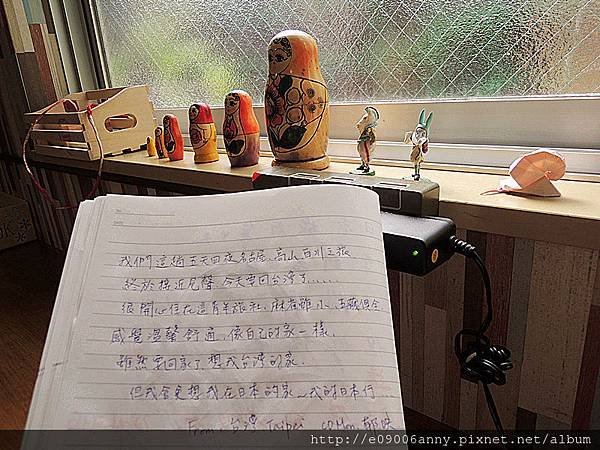 我們這趟五天四夜名古屋、高山、白川之旅
終於接近尾聲,今天要回台灣了......
很開心住在這青年旅社,麻雀雖小、五臟俱全
感覺溫馨舒適,像自己的家一樣,
雖然要回家了,想我台灣的家,
但我會更想我在日本的家~我的日本行...
From 台灣 Taipei
http://e09006anny.pixnet.net/album